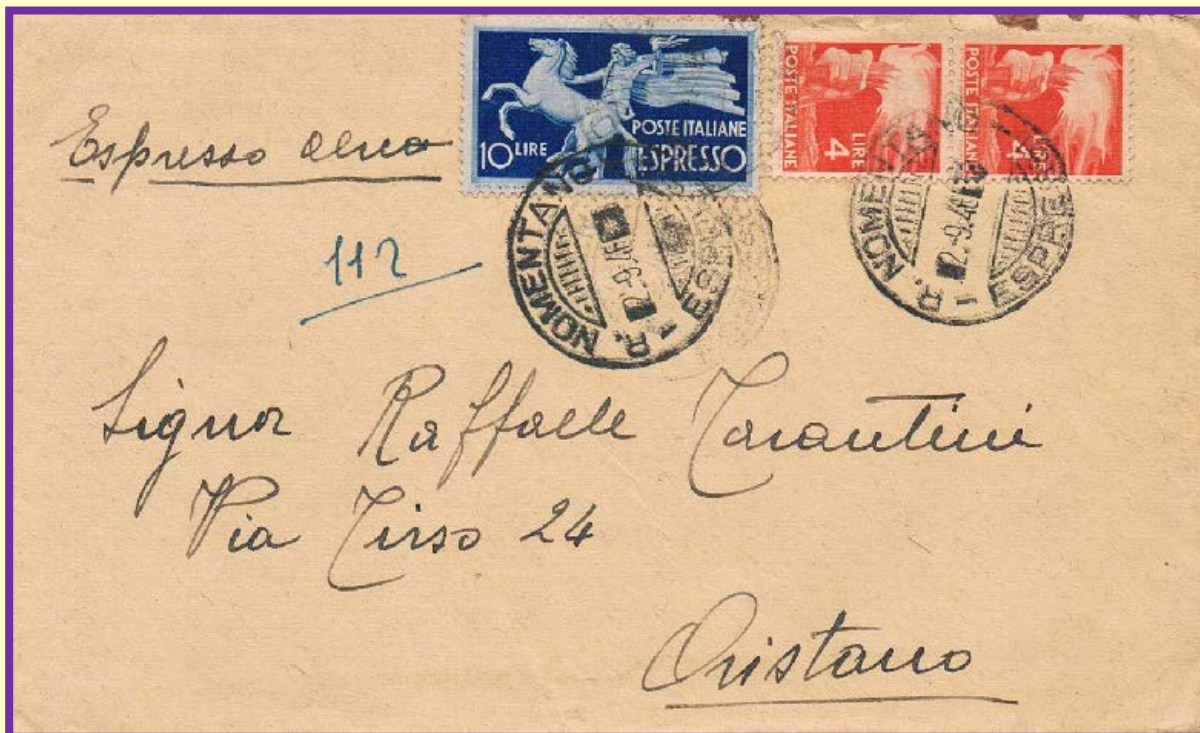 Espresso aereo
10 LIRE
POSTE ITALIANE
ESPRESSO
POSTE ITALIANE
LIRE
4
POSTE ITALIANE
LIRE
4
R. NOMENTANO
2.-9.46
ESPRESSI
R. NOMENTANO
2.-9.46
ESPRESSI
112
Signor Raffaele Tarantini
Via Tirso 24
Oristano